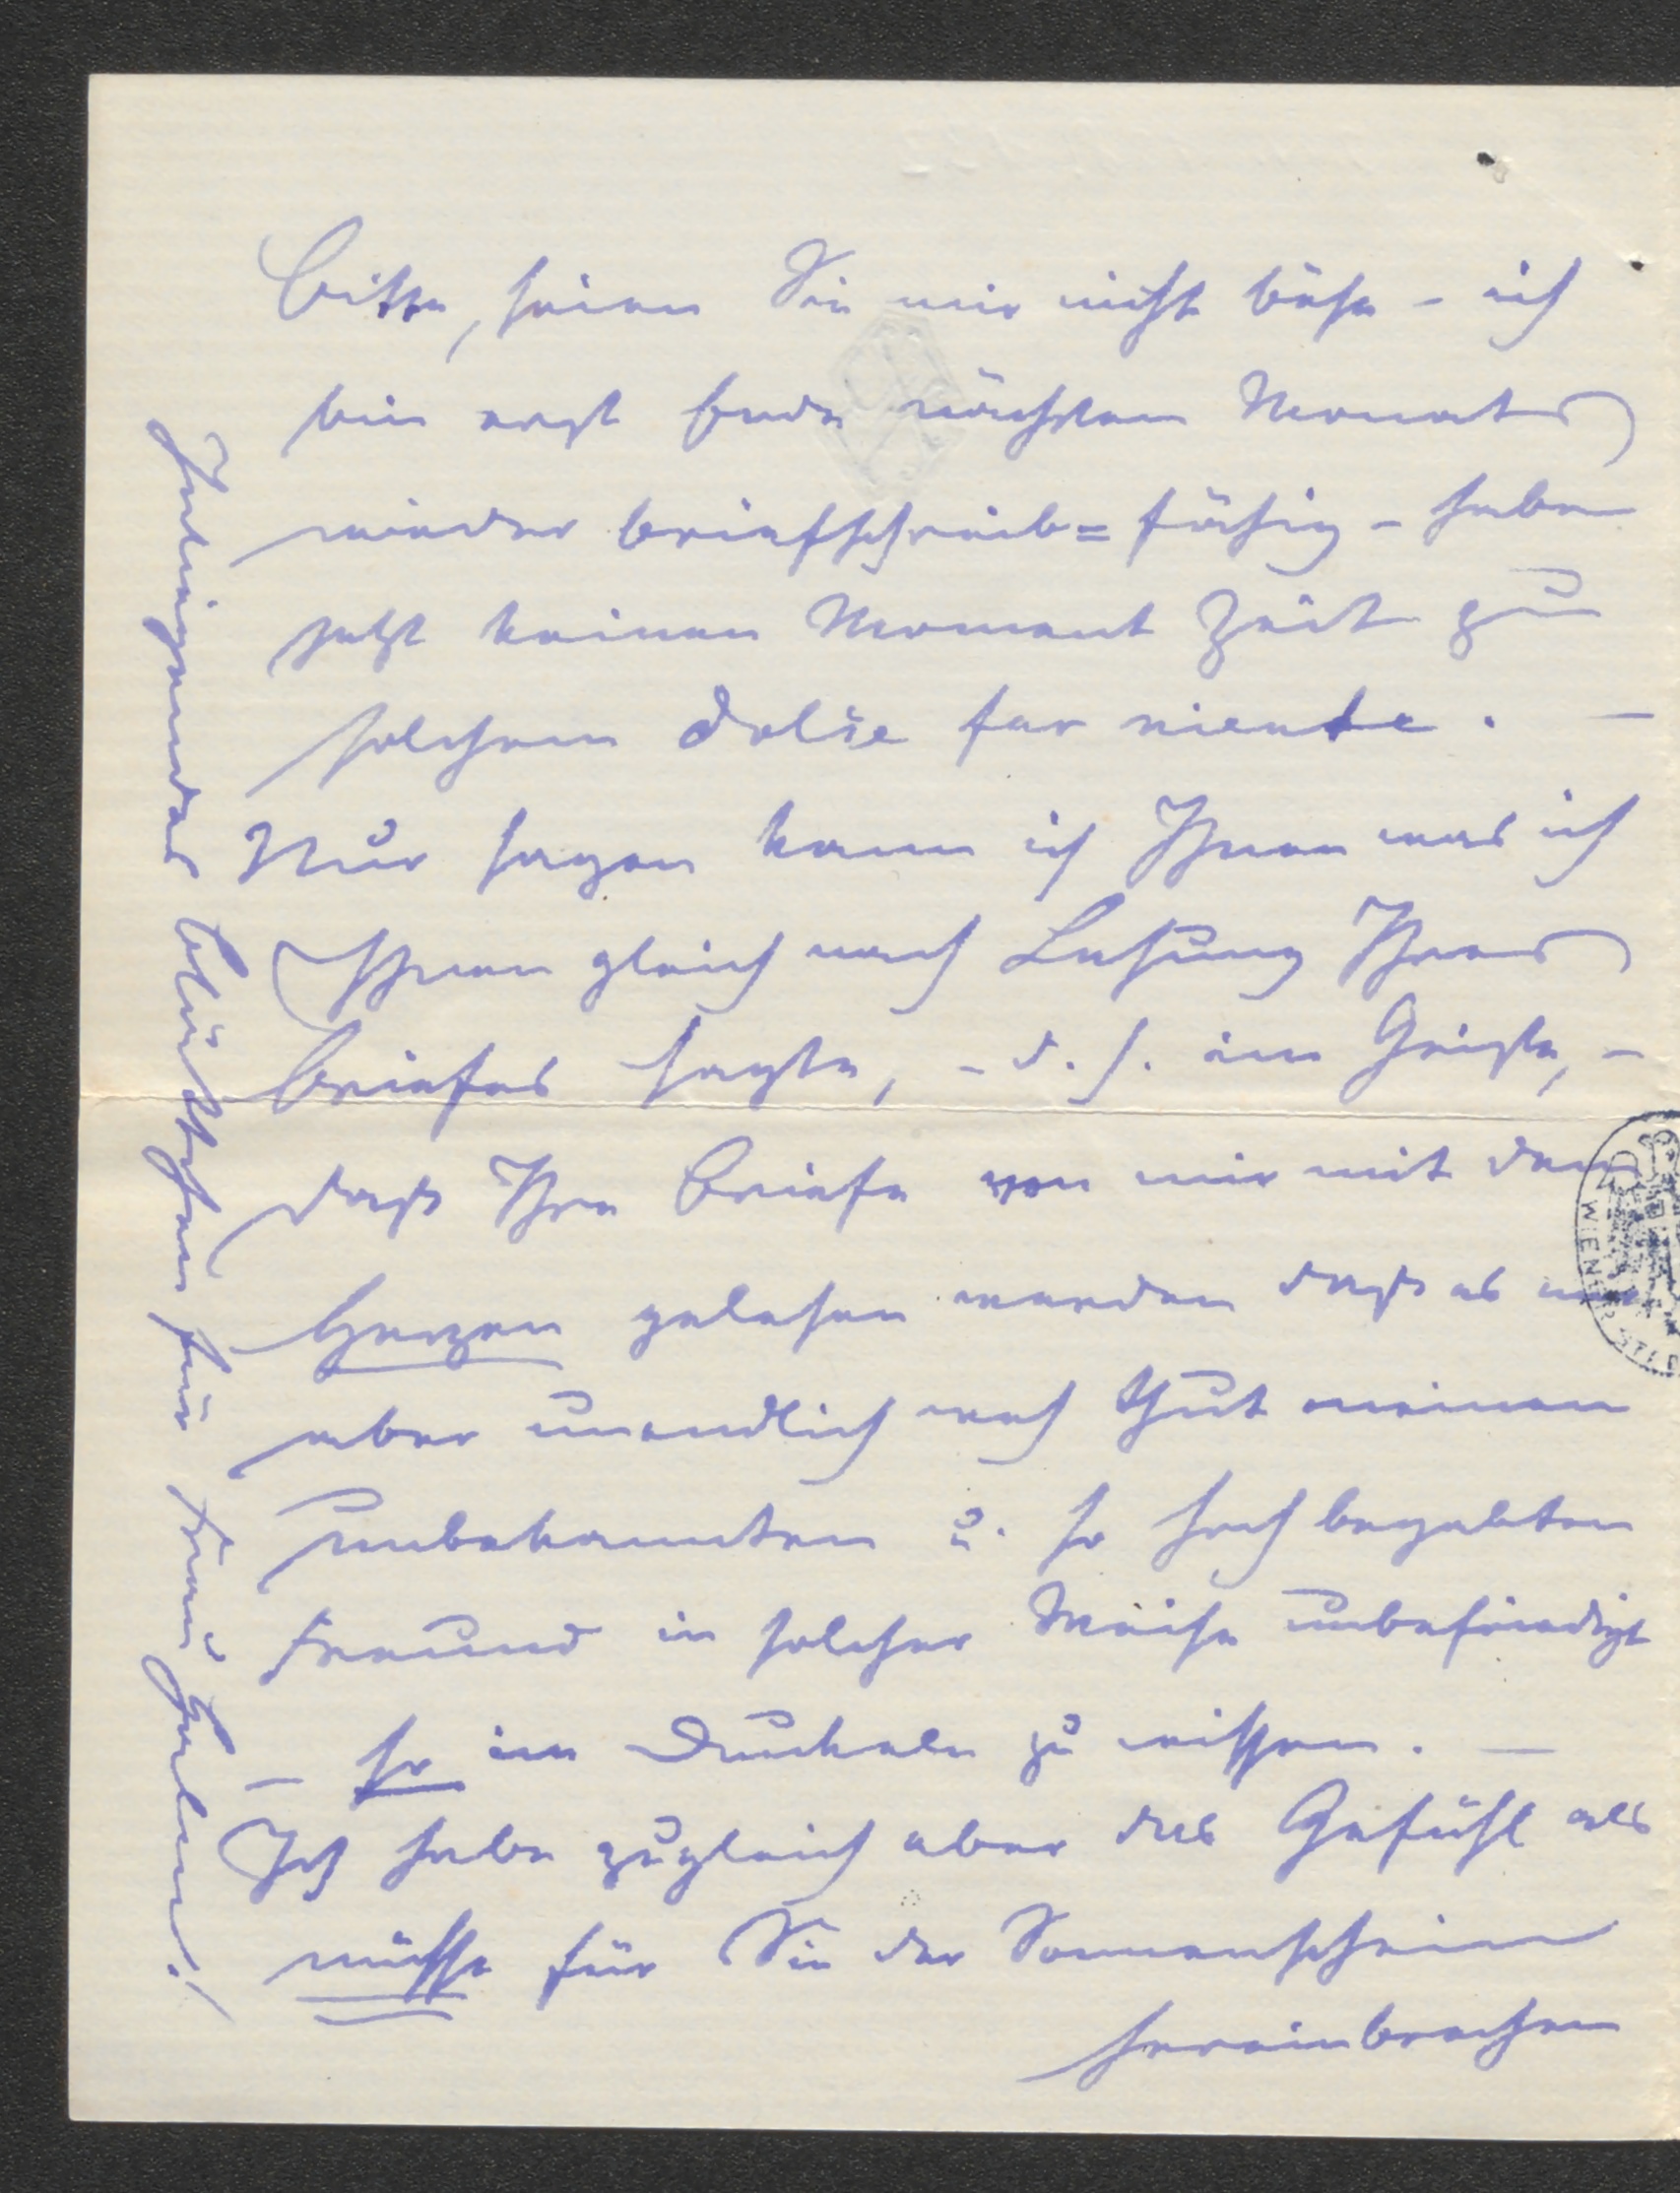 Bitte, seien Sie mir nicht böse – ich
bin erst Ende nächsten Monats
wieder briefschreib=fähig – habe
jetzt keinen Moment Zeit zu
solchem dolce far niente. —
Nur sagen kann ich Ihnen was ich
Ihnen gleich nach Lesung Ihres
Briefes sagte, – d. h. im Geiste, –
daß Ihre Briefe von mir mit dem
Herzen gelesen werden daß es mir
aber unendlich weh thut meinen
unbekannten u. so hoch begabten
Freund in solcher Weise unbefriedigt
– so im Dunkeln zu wissen. —
Ich habe zugleich aber das Gefühl als
müsse für Sie der Sonnenschein
hereinbrechen
Inliegendes Blüthchen für Frau
WIENER ST